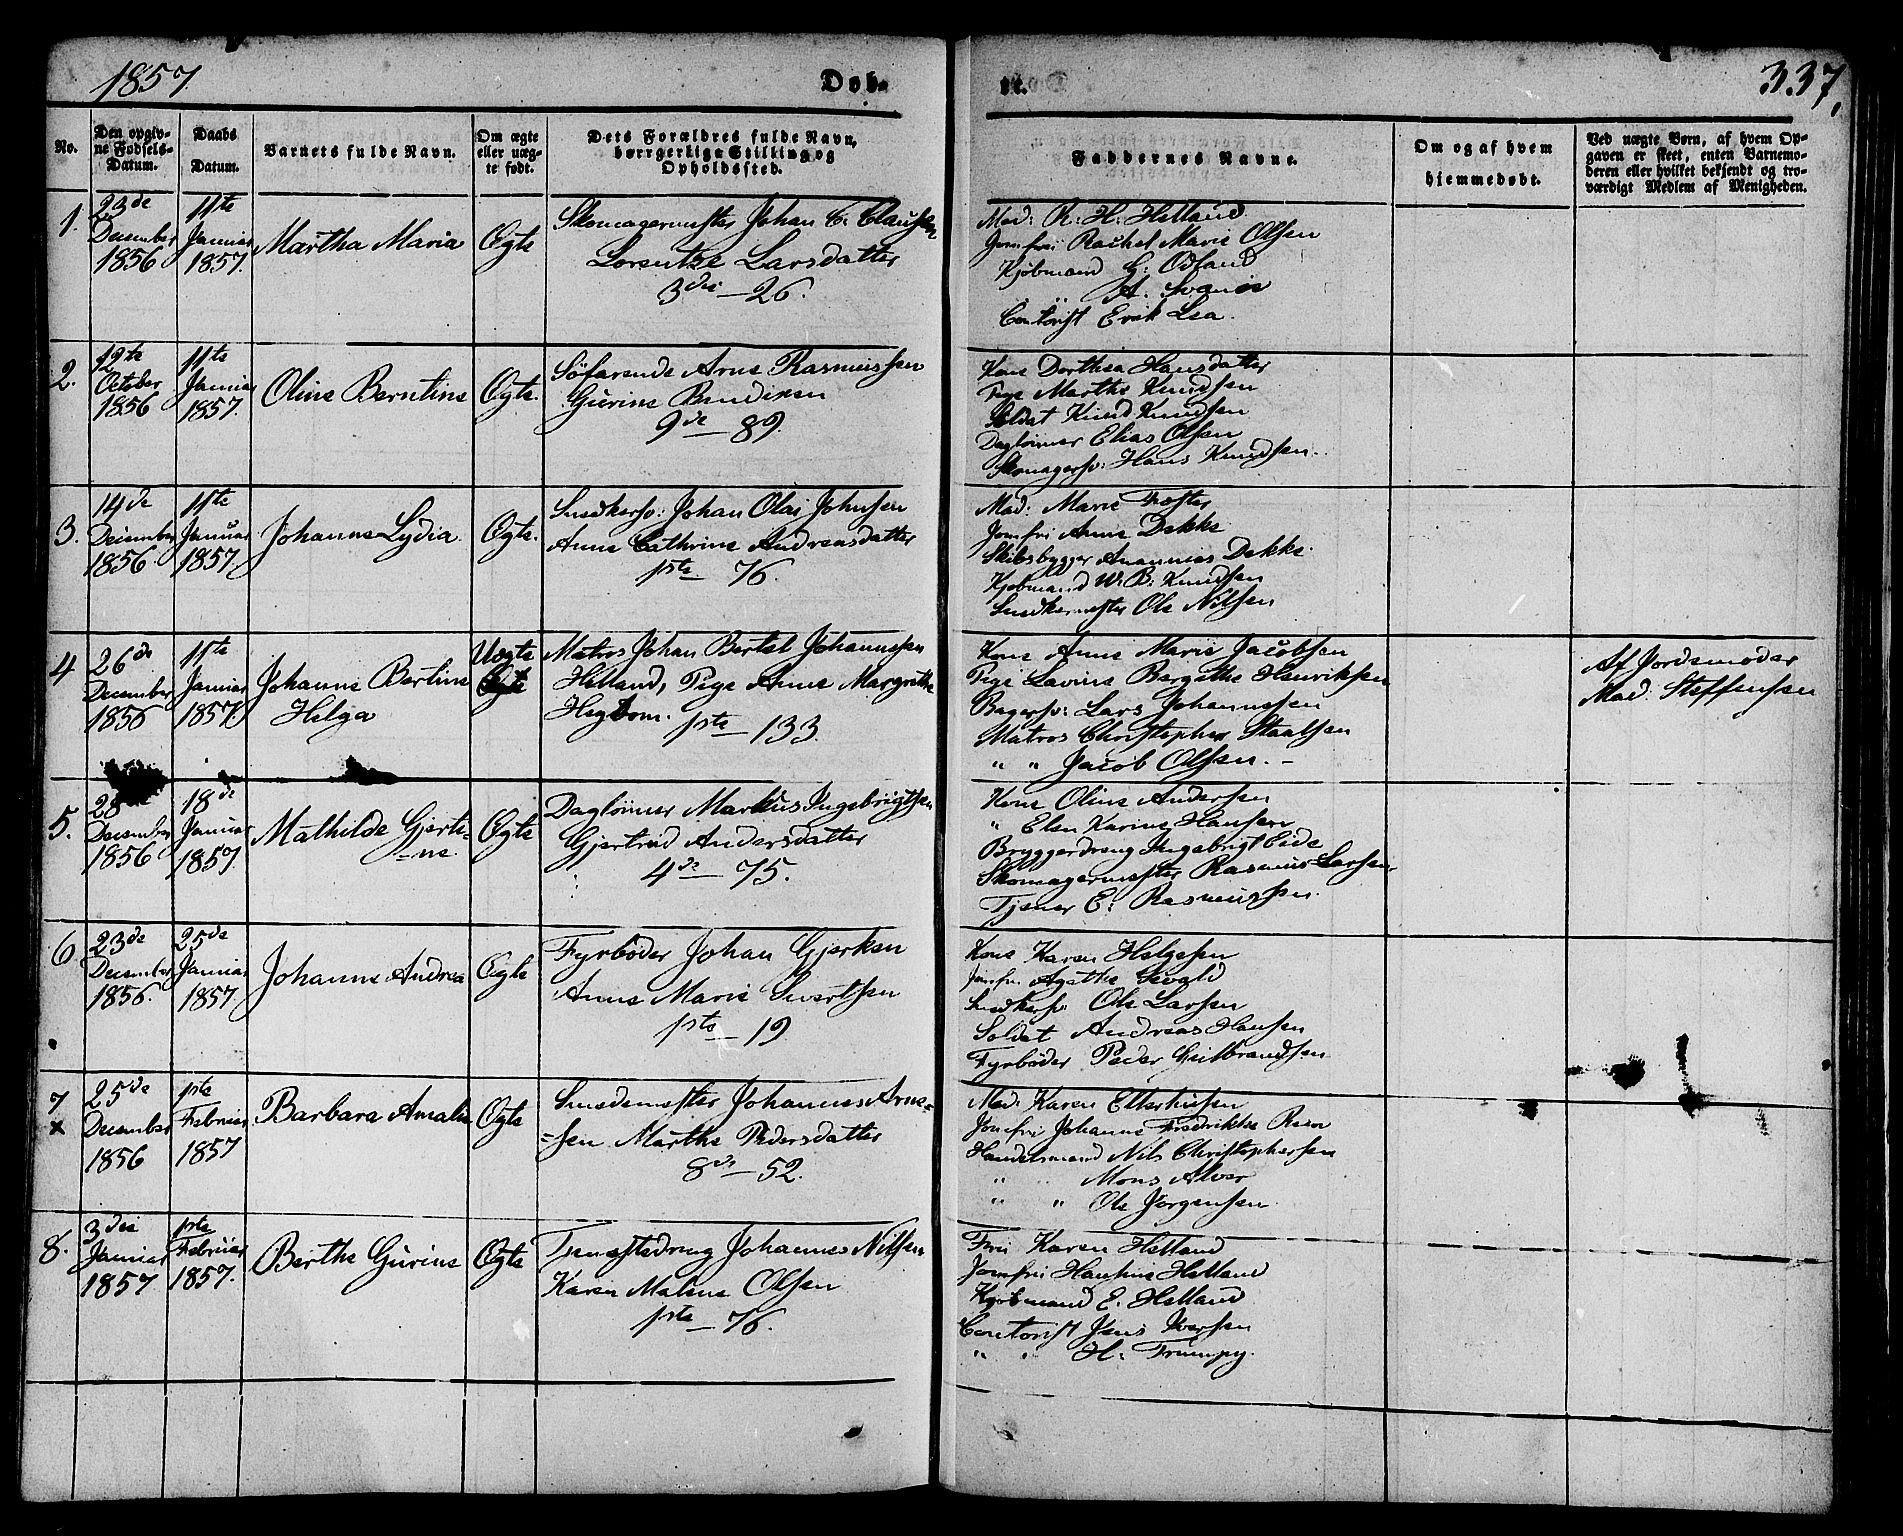 1857.
Døb-
te.
337.
No.
Den opgiv-
ne Fødsels-
Datum.
Daabs
Datum.
Varnets fulde Navn.
Om ægte
eller uæg-
te født.
Dets Forældres fulde Navn,
borrgerlige Stilling og
Opholdssted.
Faddernes Navne.
Om og af hvem
hjemmedøbt.
Ved uægte Børn, af hvem Op-
gaven er skeet, enten Barnemo-
deren eller hvilket bekjendt og tro-
værdigt Medlem af Menigheden.
1.
23de
December
1856
11te
Januar
1857.
Martha Maria
Ægte
Skomagermester Johan C. Clausen
Lorentze Larsdatter
3die – 26.
Mad: R: H: Helland
Jomfru Rachel Marie Olsen
Kjøbmand G: Odland
" A. Svanøe
Contorist Erik Lea.
2.
12te
October
1856
11te
Januar
1857.
Oline Berntine
Ægte.
Søfarende Arne Rasmussen
Gurine
9de – 89.
Kone Dorthea Hansdatter
Pige Marthe Knudsen
Soldat Knud Knudsen
Daglønner Elias Olsen
Skomagersv: Hans Knudsen.
3.
14de
December
1856.
11te
Januar
1857.
Johanne Lydia
Ægte.
Snedkersv: Johan Olai Johnsen
Anne Cathrine Andreasdatter
1ste – 76.
Mad: Marie Foster
Jomfru Anna Dekke
Skibsbygger Anannias Dekke.
Kjøbmand W: B: Knudsen
Snedkermester Ole Nilsen
4
26de
December
1856
11te
Januar
1857.
Johanne Bertine
Helga
Uægte
Ægte
Matros Johan Bertel Johannessen
Helland, Pige Anne Margrethe
Hegbom. 1ste – 133.
Kone Anne Marie Jacobsen
Pige Lavine Bergithe Henriksen
Bagersv: Lars Johannesen
Matros Christopher Staalsen
" " Jacob Olsen. –
Af Jordemoder
Mad: Steffensen
5.
28
December
1856
18de
Januar
1857.
Mathilde Gjerti-
=ne.
Ægte
Daglønner Markus Ingebrigtsen
Gjertrud Andersdatter
4de – 75.
Kone Oline Andersen
" Elen Karine Hansen
Bryggerdreng Ingebrigt Eide
Skomagermester Rasmus Larsen.
Tjener E: Rasmussen.
6
23de
December
1856.
25de
Januar
1857.
Johanne Andrea
Ægte
Fyrbøder Johan Gjerken
Anne Marie Sivertsen
1ste – 19
Kone Karen Helgesen
Jomfru Agathe
Snedkersv: Ole Larsen
Soldat Andreas Hansen
Fyrbøder Peder Gulbrandsen
7
x
25de
December
1856
1ste
Februar
1857
Barbara Amalia
Ægte
Smedemester Johannes Arne=
=sen Marthe Pedersdatter
8de – 52.
Mad: Karen Etterhusen
Jomfru Johanne Fredrikke
Handelsmand Nils Christophersen
" " Mons Alver
" " Ole Jørgensen
8.
3die
Januar
1857
1ste
Februar
1857.
Berthe Gurine
Ægte
Tjenestedreng Johannes Nilsen
Karen Malene Olsen
1ste – 76.
Frue Karen Helland
Jomfru Hantine Helland
Kjøbmand E. Helland
Contorist Jens Iversen
" " H: Trumpy.